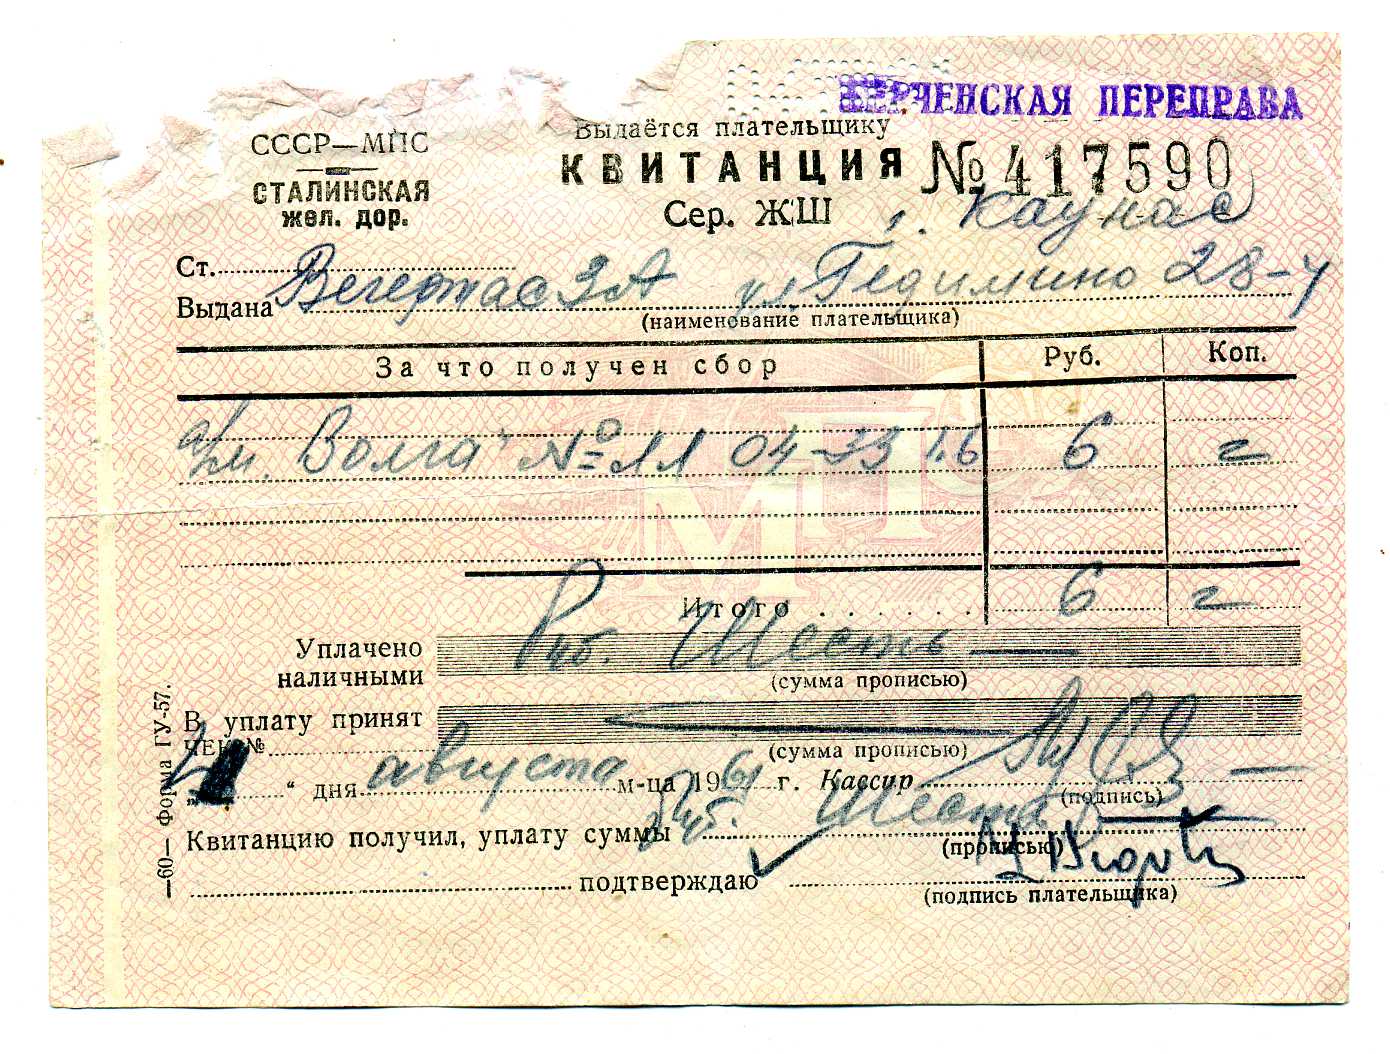 КЕРЧЕНСКАЯ ПЕРЕПРАВА
СССР—МПС
СТАЛИНСКАЯ
жел. дор.
Выдаётся плательщику
КВИТАНЦИЯ № 417590
Сер. ЖШ
г. Каунас
Ст.
Выдана Вегертас З.А ул. Гедимино 28-4
(наименование плательщика)
За что получен сбор Руб. Коп.
а/м. Волга" № 11 04-33 6
Итого 6
Уплачено наличными Руб. Шесть —
(сумма прописью)
В уплату принят
ЧЕК №
(сумма прописью)
" дня августа м-ца 1961 г. Кассир
(подпись)
Квитанцию получил, уплату суммы руб. Шесть
(прописью)
подтверждаю
(подпись плательщика)
—60— Форма ГУ-57.